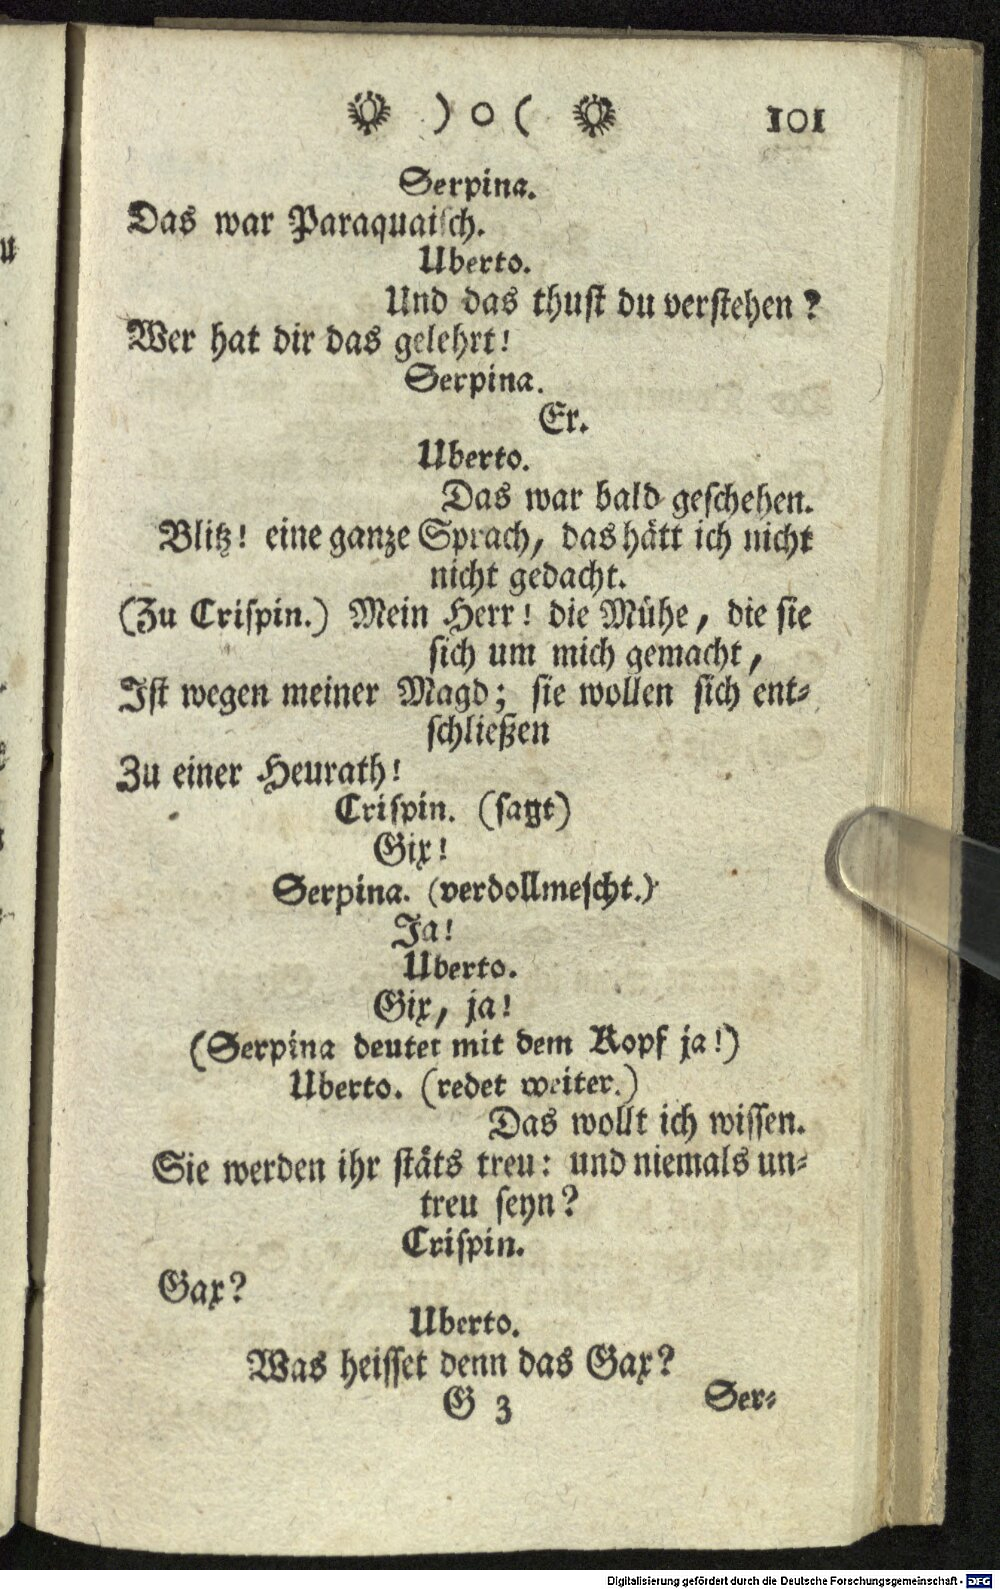 ) o ( 101
Serpina.
Das war Paraquaisch.
Uberto.
Und das thust du verstehen?
Wer hat dir das gelehrt!
Serpina.
Er.
Uberto.
Das war bald geschehen.
Blitz! eine ganze Sprach, das hätt ich nicht
nicht gedacht.
(Zu Crispin.) Mein Herr! die Mühe, die sie
sich um mich gemacht,
Ist wegen meiner Magd; sie wollen sich ent-
schließen
Zu einer Heurath!
Crispin. (sagt)
Gix!
Serpina. (verdollmescht.)
Ja!
Uberto.
Gix, ja!
(Serpina deutet mit dem Kopf ja!)
Uberto. (redet weiter.)
Das wollt ich wissen.
Sie werden ihr stäts treu: und niemals un-
treu seyn?
Crispin.
Gax?
Uberto.
Was heisset denn das Gax?
G 3 Ser-
Digitalisierung gefördert durch die Deutsche Forschungsgemeinschaft - DFG